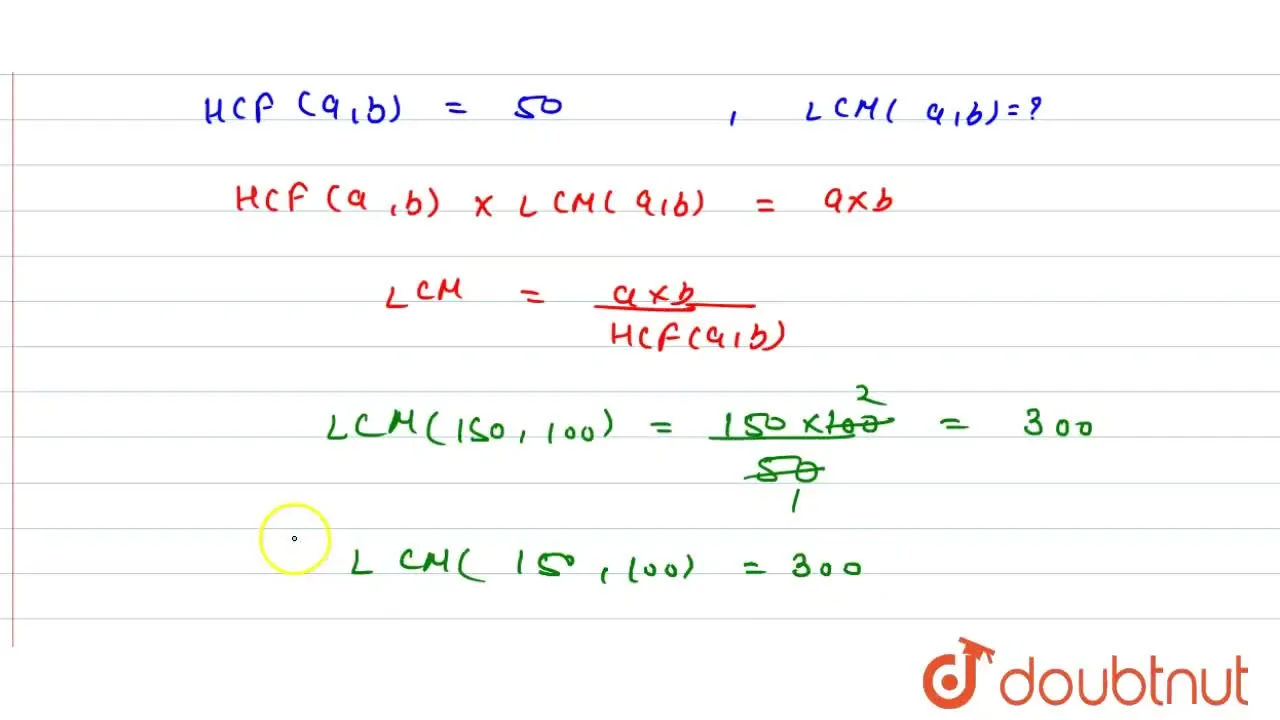 HCF (a,b) = 50 , LCM( a,b)=?
HCF (a,b) × LCM( a,b) = a×b
LCM = a×b
HCF(a,b)
2
LCM(150,100) = 150×100 = 300
50
1
LCM( 15,100) = 300
doubtnut